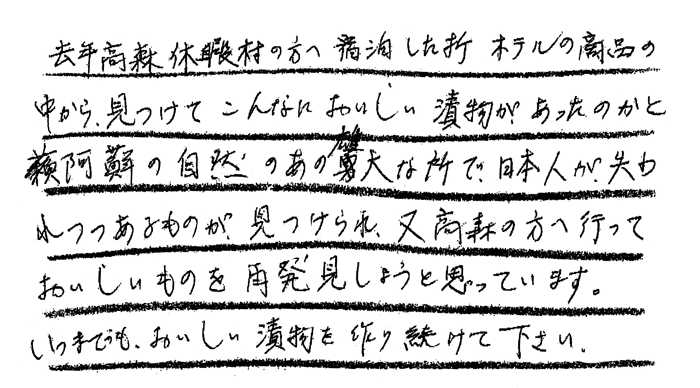 去年高森休暇村の方へ宿泊した折 ホテルの商品の
中から、見つけてこんなにおいしい漬物があったのかと
阿蘇の自然のあの雄大な所で、日本人が、失わ
れつつあるものが、見つけられ、又高森の方へ行って
おいしいものを再発見しようと思っています。
いつまでも、おいしい漬物を作り続けて下さい。